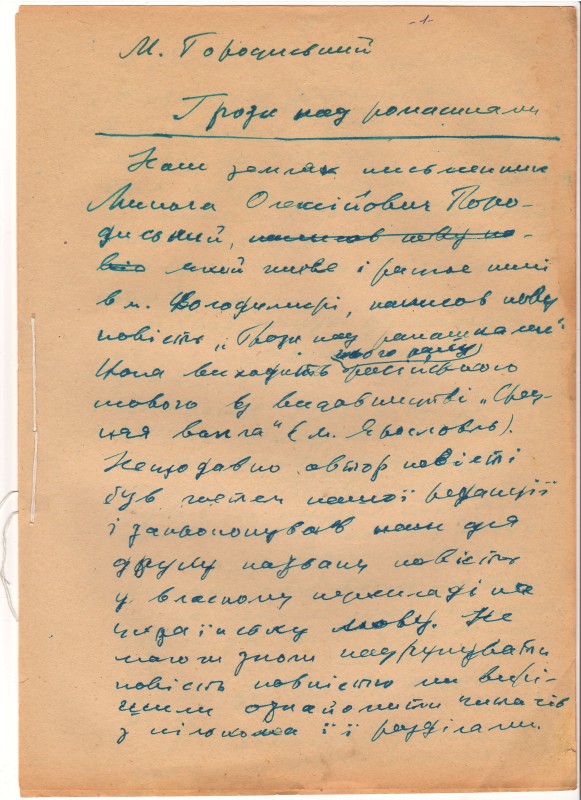 -1-
М. Городиський
Грози над ромашками
Наш земляк письменник
Микола Олексійович Горо-
диський, написав нову по-
вість який живе і працює нині
в м. Володимирі, написав нову
повість „Грози над ромашками"
Вона виходить цього року російською
мовою в видавництві „Сред-
няя волга" (м. Ярославль).
Нещодавно автор повісті
був гостем нашої редакції
і запропонував нам для
друку названу повість
у власному перекладі на
українську мову. Не
маючи змоги надрукувати
повість повністю ми вирі-
шили ознайомити читачів
з кількома її розділами.